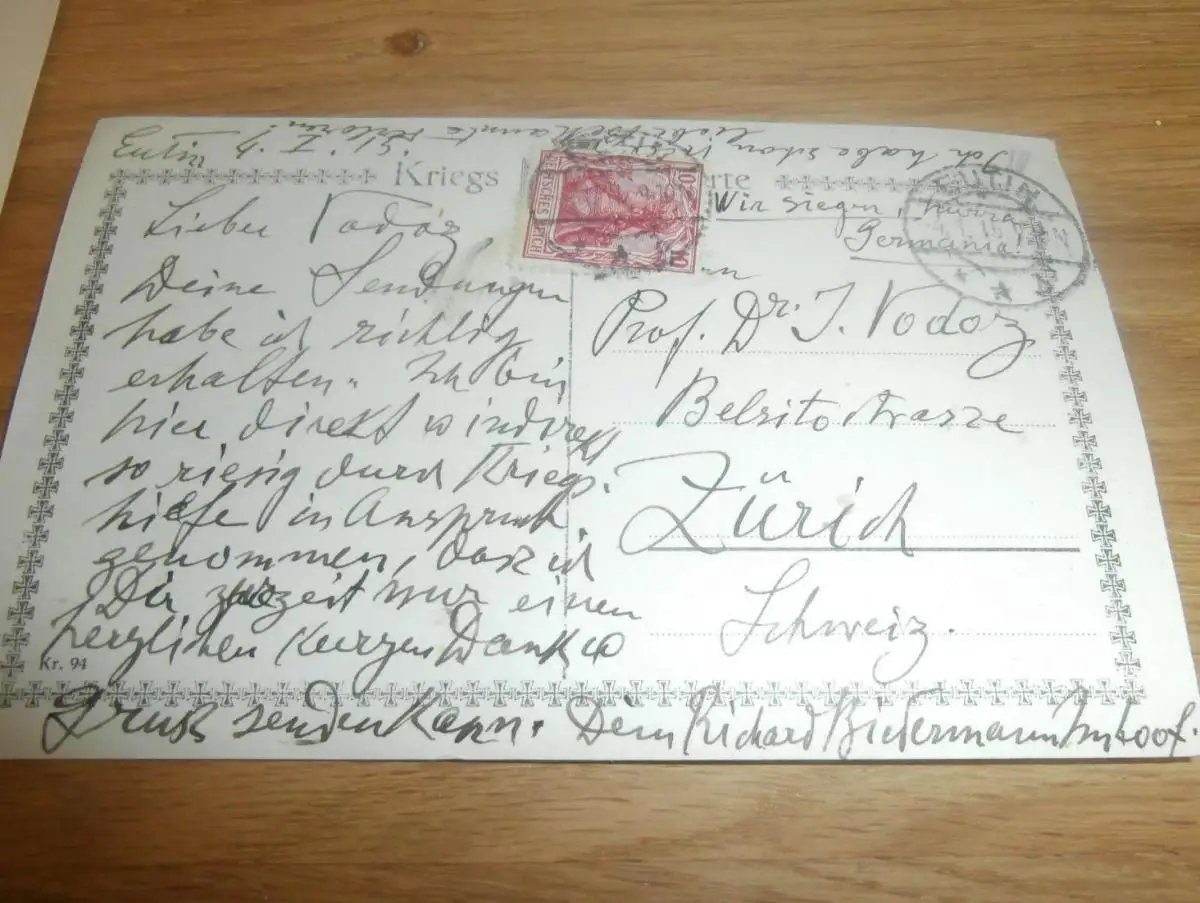 Eutin
Ich habe schon
Kriegs rte
Wir siegen, hurra
Germania!
EUTIN
10 DEUTSCHES REICH 10
Lieber Vodoz
Deine Sendungen
habe ich richtig
erhalten. Ich bin
hier direkt u indirekt
so riesig durch Kriegs-
hilfe in Anspruch
genommen, dasz ich
Dir zurzeit nur einen
herzlichen kurzen Dank u
Gruss senden kann. Dein Richard Biedermann Imhoof.
Prof. Dr. J. Vodoz
Belsitostrasse
Zürich
Schweiz.
Kr. 94